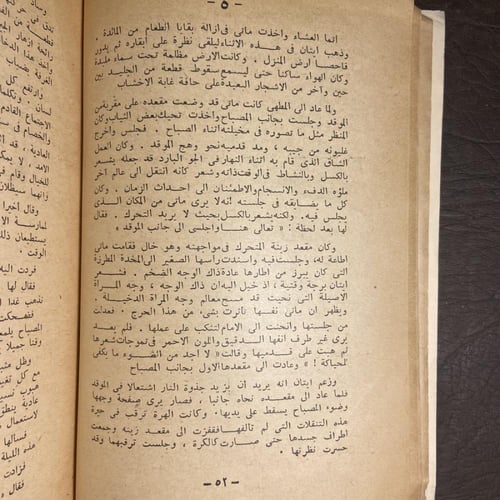 — ٥ —
انما العشاء واخذت ماتى فى ازالة بقايا الطعام من المائدة .
وذهب ايثان فى هذه الاثناء ليلقى نظرة على أبقاره ثم يدور
فاحصا أرض المنزل . وكانت الارض مظلمة تحت سماء ملبدة
وكان الهواء ساكنا حتى ليسمع سقوط قطعة من الجليد بين
حين وآخر من الاشجار البعيدة على حافة غابة الاخشاب
ولما عاد الى المطهى كانت ماتى قد وضعت مقعده على مقربة من
الموقد وجلست بجانب المصباح واخذت تحيك بعض الثياب وكان
المنظر مثل ما تصوره فى مخيلته اثناء الصباح . فجلس واخرج
غليونه من جيبه ، ومد قدميه نحو وهج الموقد . وكان العمل
الشاق الذى قام به اثناء النهار فى الجو البارد قد جعله يشعر
بالكسل وبالنشاط فى الوقت ذاته وشعر كأنه انتقل الى عالم آخر
ملؤه الدفء والانسجام والاطمئنان الى احداث الزمان . وكان
كل ما يضايقه فى جلسته انه لا يرى ماتى من المكان الذى
يجلس فيه. ولكنه يشعر بالكسل بحيث لا يريد التحرك . فقال
لها بعد لحظة : « تعالى هنا واجلسى الى جانب الموقد »
وكان مقعد زينة المتحرك فى مواجهته وهو خال فقامت ماتى
اطاعة له ، وجلست فيه واسندت راسها الصغير الى المخدة المطرزة
التى كان يبرز من اطارها عادة ذاك الوجه الضخم . فشعر
ايثان برجة وقتية ، اذ خيل اليه ان ذاك الوجه ، وجه المراة
الاصيلة التى نحيت قد مسح معالم وجه المراة الدخيلة .
ويظهر ان ماتى نفسها تأثرت بشىء من هذا الحرج . فعدلت
من جلستها وانحنت الى الامام لتنكب على عملها . فلم يعد
يرى غير طرف انفها الدقيق واللون الاحمر فى تموجات شعرها
ثم هبت على قدميها وقالت « لا اجد من الضوء ما يكفى
للحياكة ! » وعادت الى مقعدها الاول بجانب المصباح
وزعم ايثان انه يريد ان يزيد جذوة النار اشتعالا فى الموقد
فلما عاد الى مقعده نحاه جانبا ، فصار يرى صفحة وجهها
وضوء المصباح يسقط على يديها. وكانت الهرة ترقب فى حيرة
هذه التنقلات التى لم تالفها فقفزت الى مقعد زينة وجمعت
اطراف جسدها حتى صارت كالكرة ، وجلست ترقبهما وقد
حسرت نظرتها .
— ٥٢ —